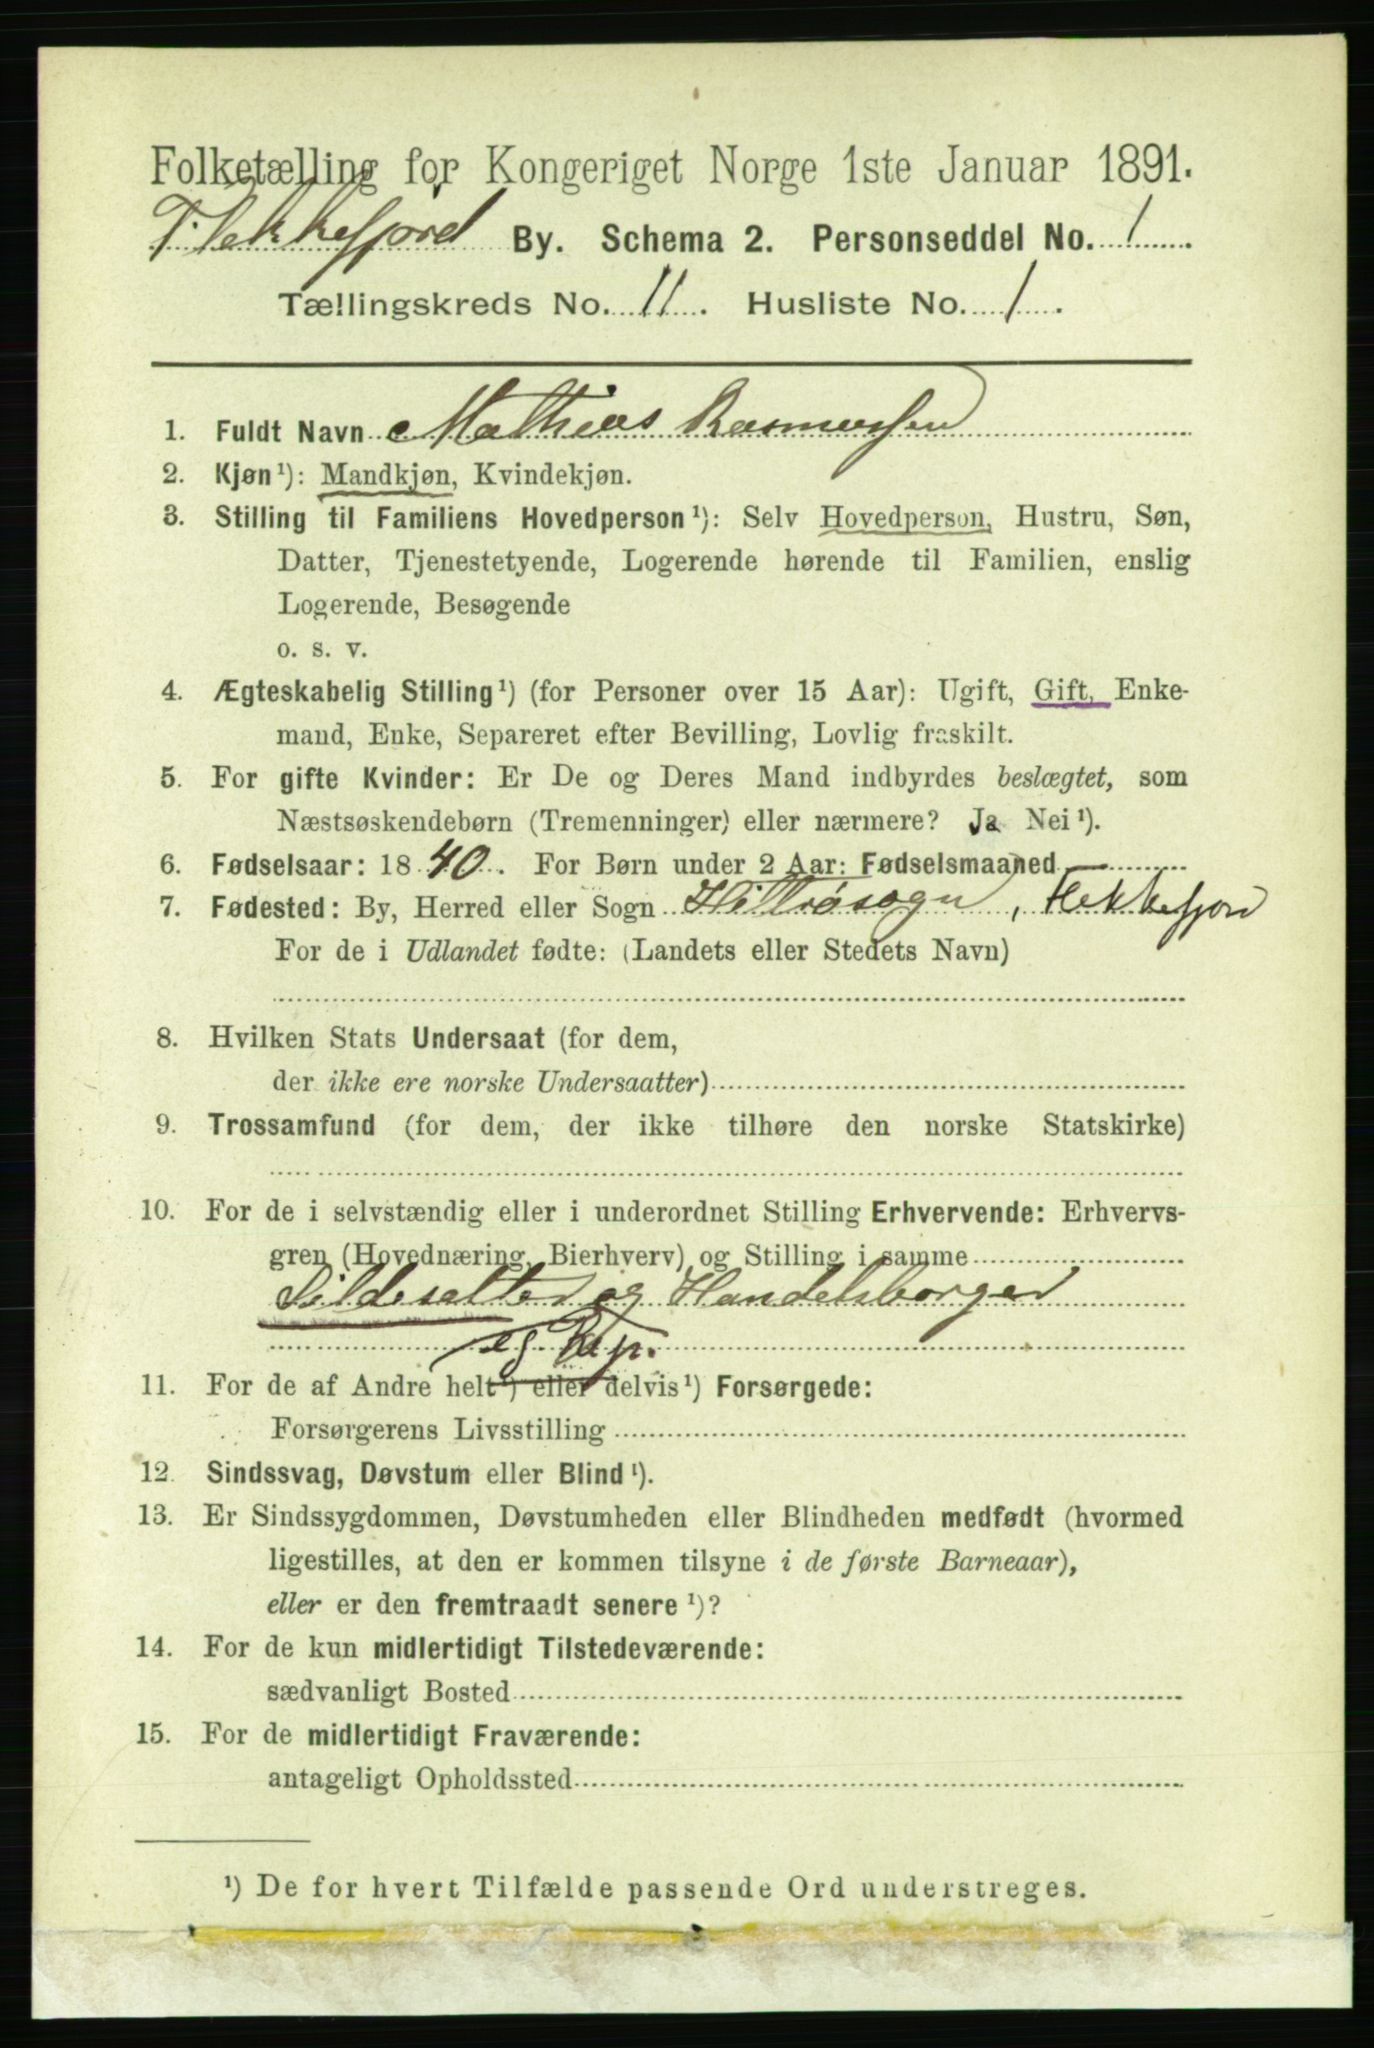 Folketælling for Kongeriget Norge 1ste Januar 1891.
Flekkefjord By. Schema 2. Personseddel No. 1
Tællingskreds No. 11. Husliste No. 1.
1. Fuldt Navn Mathias Rasmussen
2. Kjøn¹): Mandkjøn, Kvindekjøn.
3. Stilling til Familiens Hovedperson¹): Selv Hovedperson, Hustru, Søn,
Datter, Tjenestetyende, Logerende hørende til Familien, enslig
Logerende, Besøgende
o. s. v.
4. Ægteskabelig Stilling¹) (for Personer over 15 Aar): Ugift, Gift, Enke-
mand, Enke, Separeret efter Bevilling, Lovlig fraskilt.
5. For gifte Kvinder: Er De og Deres Mand indbyrdes beslægtet, som
Næstsøskendebørn (Tremenninger) eller nærmere? Ja Nei¹).
6. Fødselsaar: 1840. For Børn under 2 Aar: Fødselsmaaned —
7. Fødested: By, Herred eller Sogn Hitterøsogn, Flekkefjord
For de i Udlandet fødte: (Landets eller Stedets Navn)
8. Hvilken Stats Undersaat (for dem,
der ikke ere norske Undersaatter)
9. Trossamfund (for dem, der ikke tilhøre den norske Statskirke)
10. For de i selvstændig eller i underordnet Stilling Erhvervende: Erhvervs-
gren (Hovednæring, Bierhverv) og Stilling i samme
Sildesalter og Handelsborger
11. For de af Andre helt¹) eller delvis¹) Forsørgede:
Forsørgerens Livsstilling
12. Sindssvag, Døvstum eller Blind¹).
13. Er Sindssygdommen, Døvstumheden eller Blindheden medfødt (hvormed
ligestilles, at den er kommen tilsyne i de første Barneaar),
eller er den fremtraadt senere¹)?
14. For de kun midlertidigt Tilstedeværende:
sædvanligt Bosted
15. For de midlertidigt Fraværende:
antageligt Opholdssted
¹) De for hvert Tilfælde passende Ord understreges.